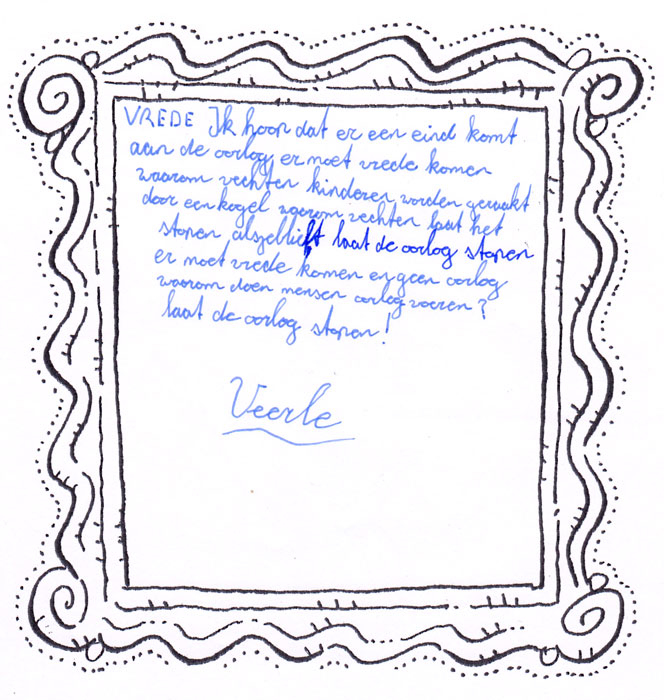 VREDE Ik hoop dat er een eind komt
aan de oorlog er moet vrede komen
waarom vechten kinderen worden geraakt
door een kogel waarom vechten laat het
stopen alsjeblieft laat de oorlog stopen
er moet vrede komen en geen oorlog
waarom doen mensen oorlog voeren?
laat de oorlog stopen!
Veerle